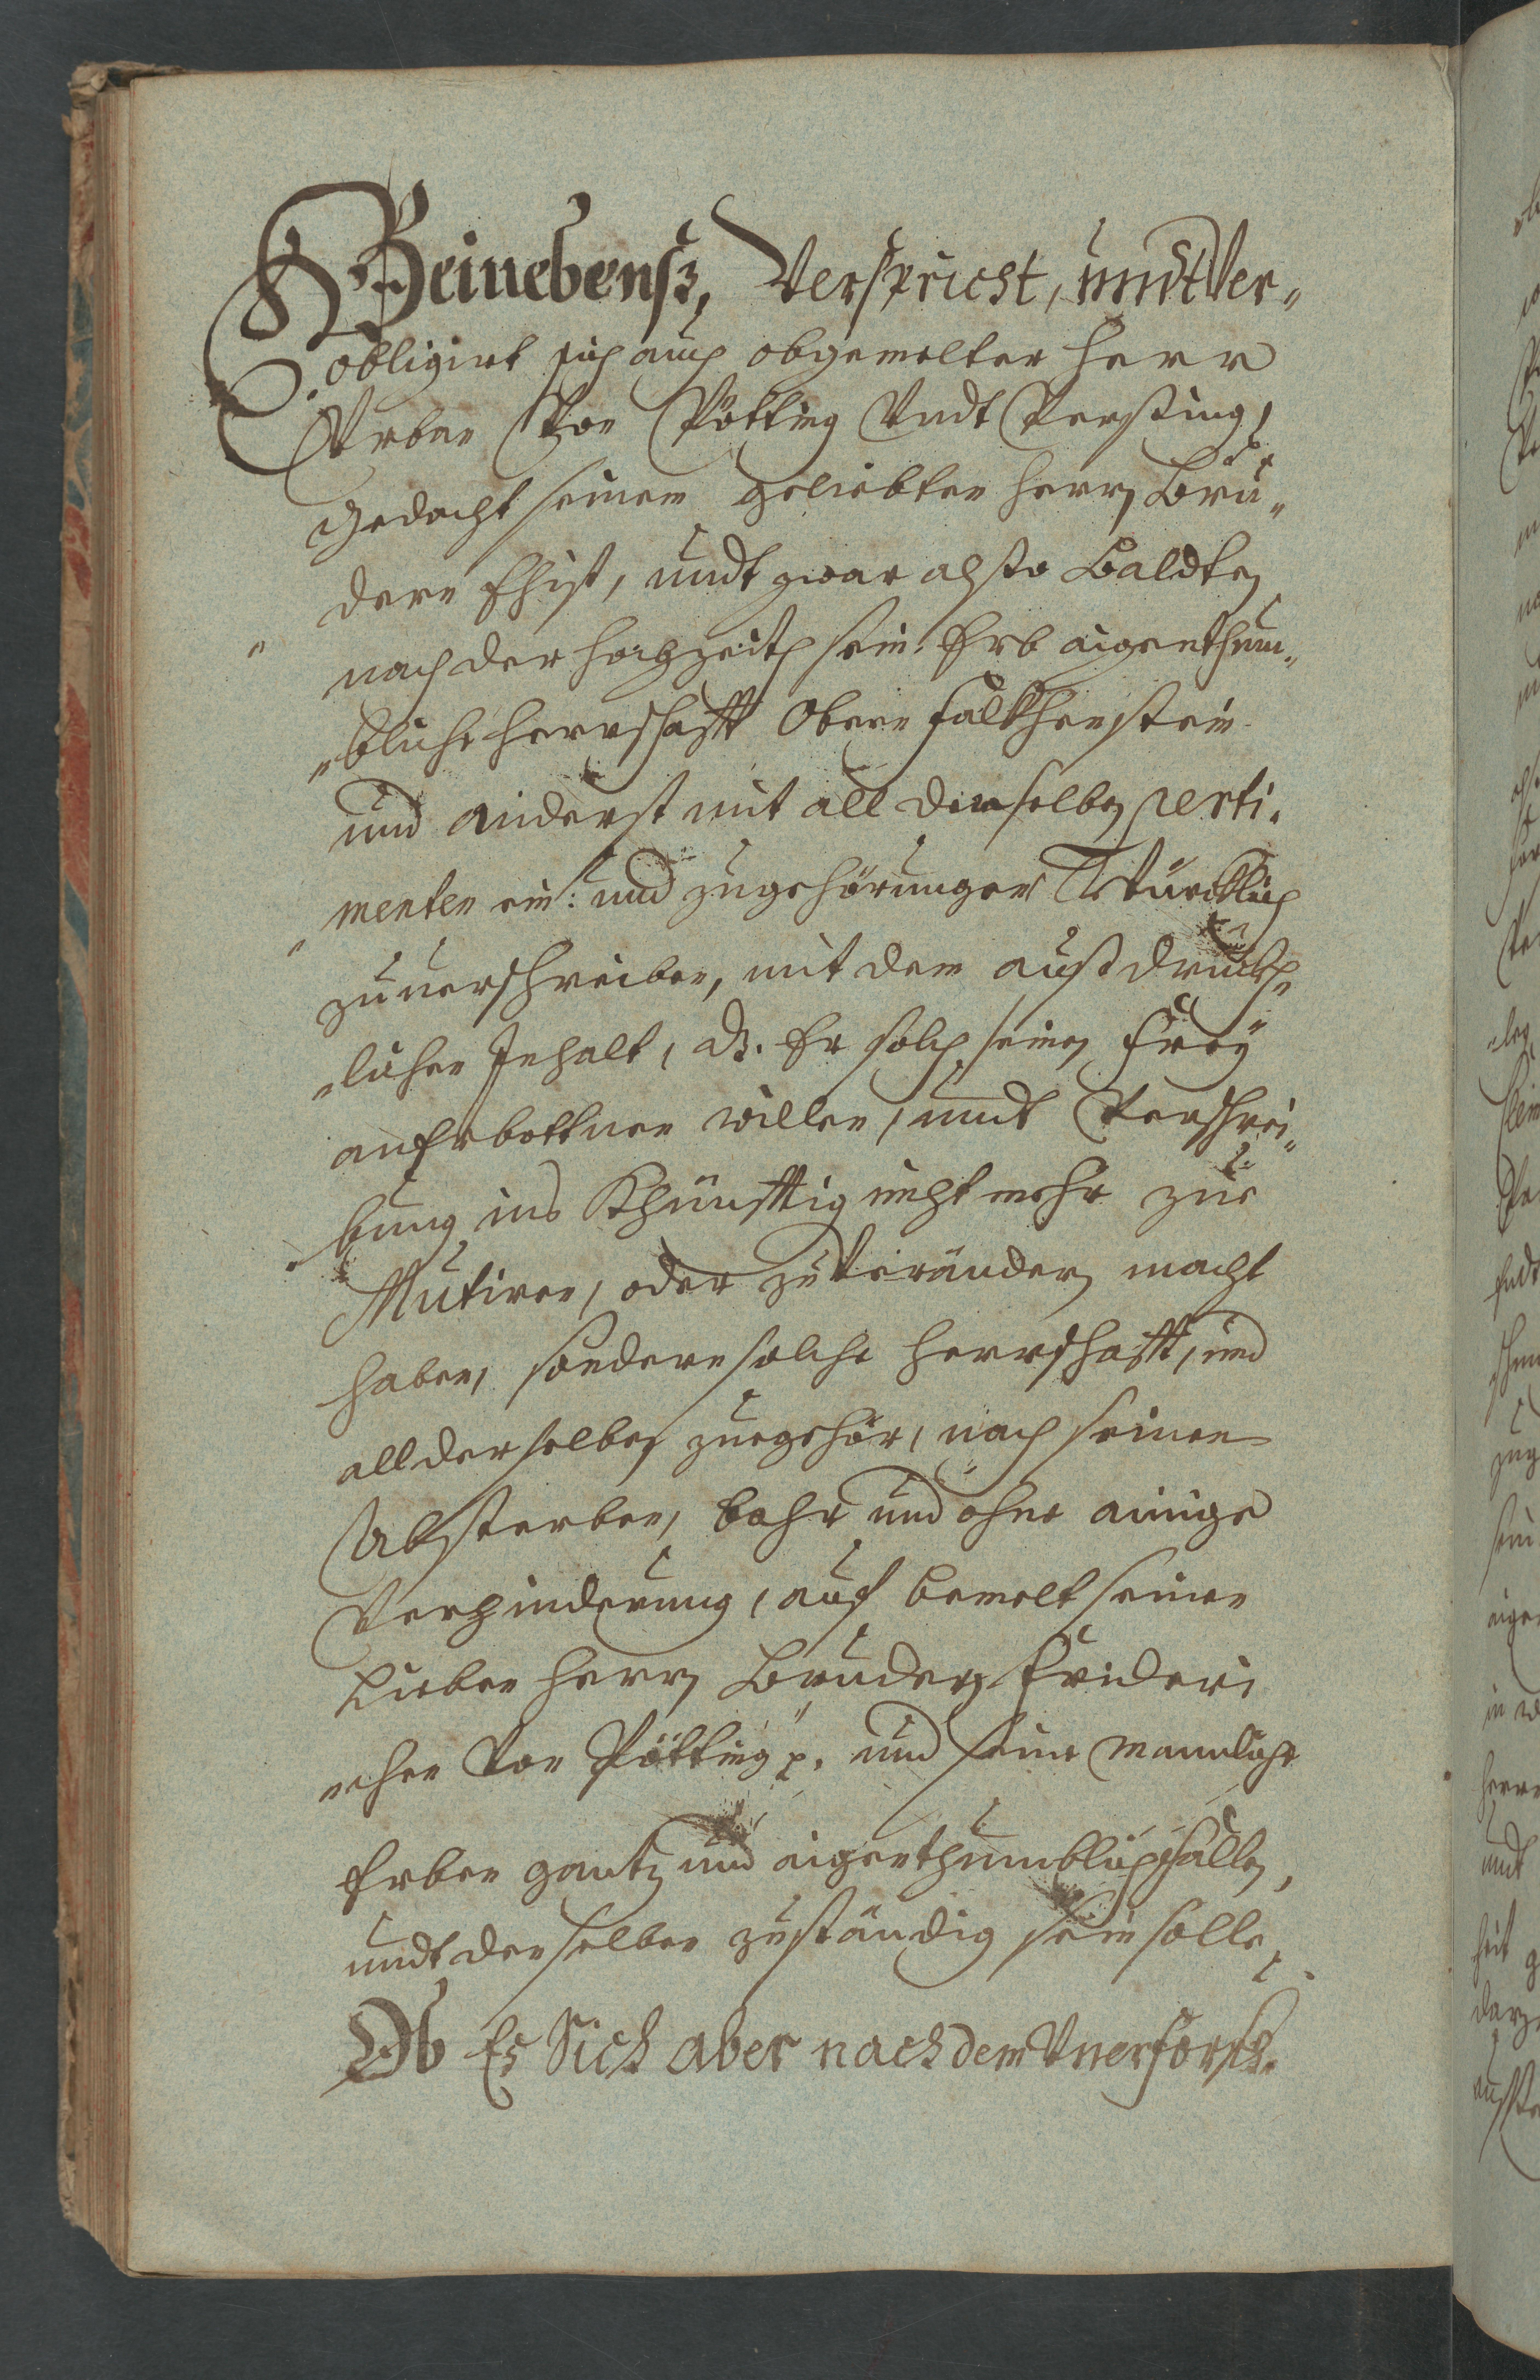 Beinebenß, Verspricht, undt Ver„
obligirt sich auch obgemelter Herr
Urban Von Pötting Undt Persing,
gedacht seinem geliebten Herrn Bru„
dern Ehist, undt zwar alßo Baldten
„ nach der Hochzeith sein Erb aigenthum„
„bliche Herrschafft Obern Falkhenstein
und anderst mit all derselben Perti„
„ menten ein: und zugehörungen Würcklich
zuuerschreiben, mit dem außdruckh„
„lichen Inhalt, dz. Er solch seinen Frey
anerbottnen willen, undt Verschrei„
„ bung ins Khünfftig nicht mehr zue
Mutiren, oder zu Veränderen macht
haben, sondern solche Herrschafft, und
all derselben zuegehör, nach seinen
Absterben, bahr und ohne ainige
Verhinderung, auf bemelt seinen
Lieben Herrn Brudern Frideri
„chen Von Pötting p. und seine mannliche
Erben gantz und aigenthumblich fallen,
undt denselben zuständig sein solle.
Ob Es Sich aber nach dem Unerforsch„